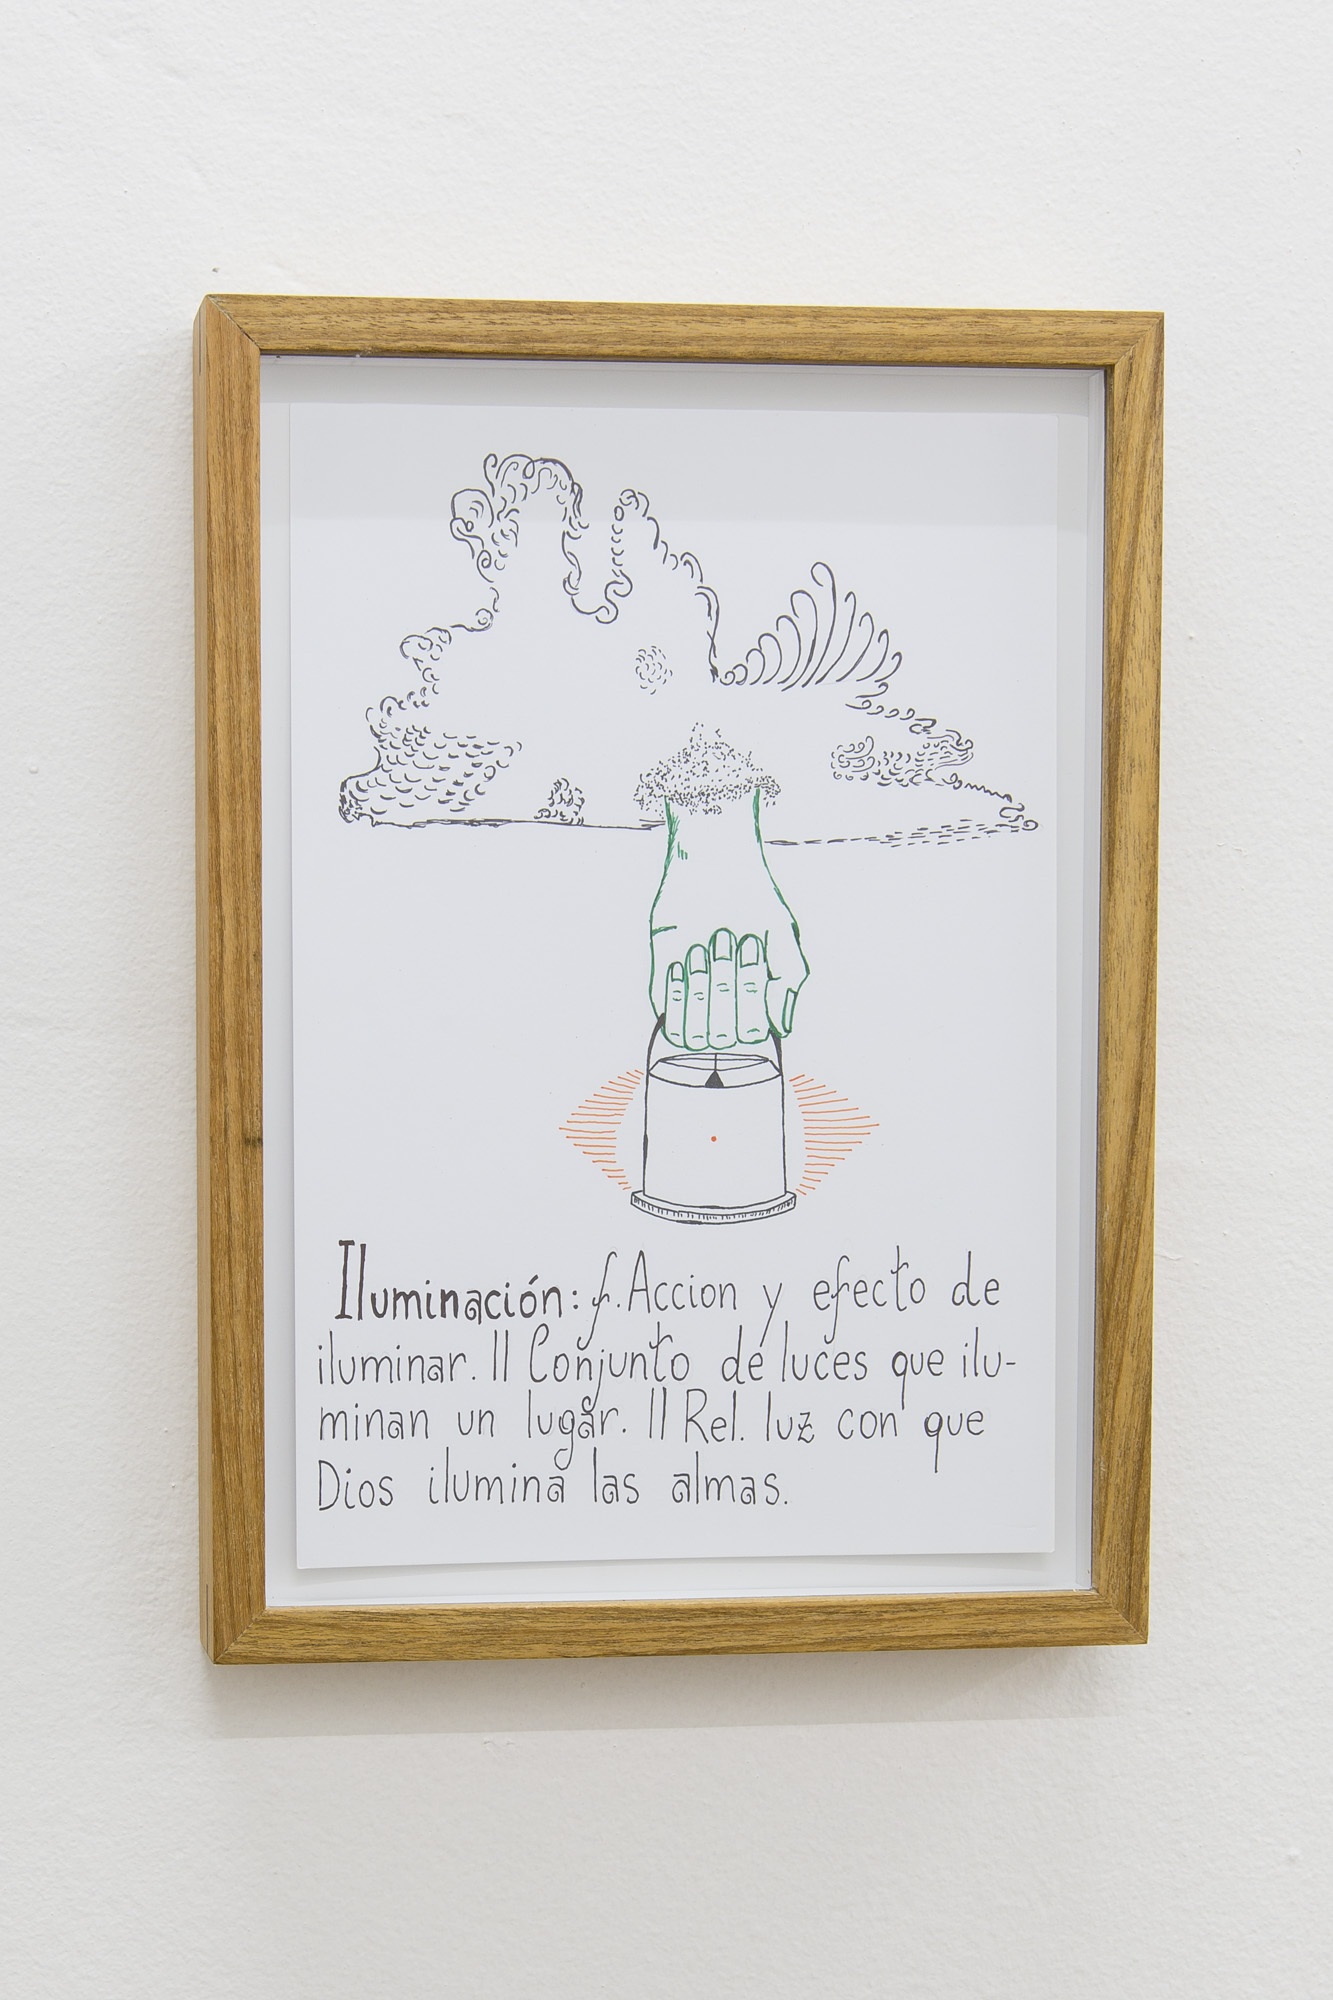 Iluminación: f. Accion y efecto de
iluminar. || Conjunto de luces que ilu-
minan un lugar. || Rel. luz con que
Dios ilumina las almas.